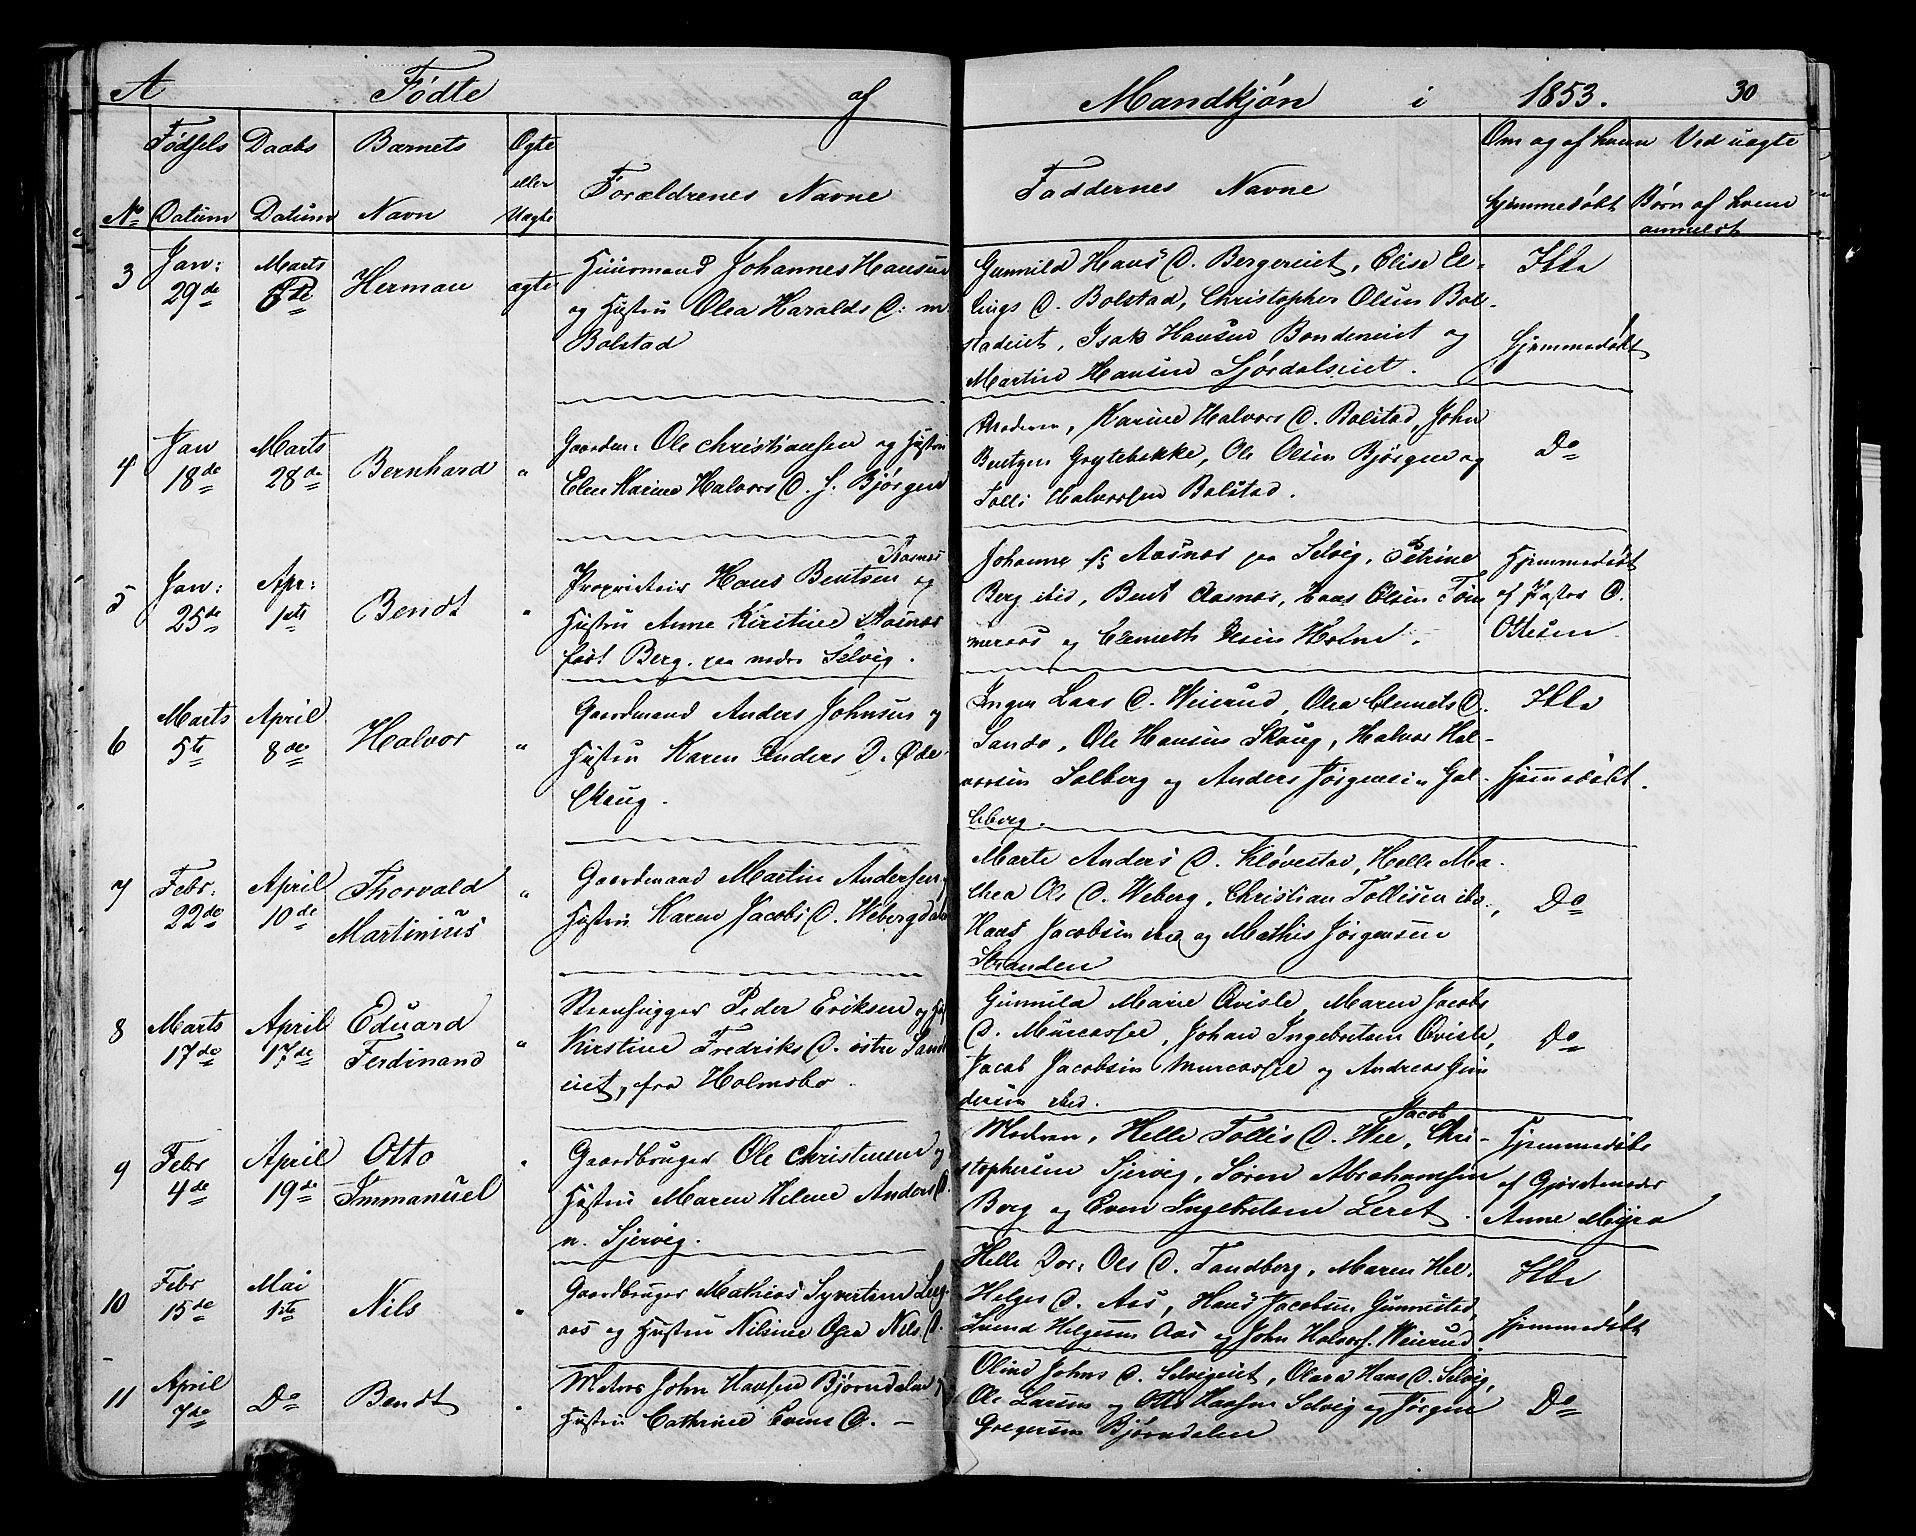 A Fødte af Mandkjøn i 1853. 30
No Fødsels Datum Daabs Datum Barnets Navn Ægte eller Uægte Forældrenes Navne Faddernes Navne Om og af hvem hjemmedøbt Ved uægte Børn af hvem anmeldt
3 Jan: 29de Marts 6te Herman ægte
Huusmand Johannes Hansen
og Hustru Olea Haralds D:
Bolstad
Gunnild Hans D. Bergereiet, Elise El-
lings D. Bolstad, Christopher Olsen Bol-
stadeiet, Isak Hansen Bondeneiet og
Martin Hansen Sjørdalseiet.
Ikke
hjemmedøbt
4 Jan 18de Marts 28de Bernhard "
Gaardm. Ole Christiansen og Hustru
Elen Karine Halvors D. Bjørgen
Moderen, Karine Halvors D. Bolstad, John
Bentzen Grytebakke, Ole Olsen Bjørgen og
Tolli Halvorsen Bolstad.
Do
5 Jan: 25de Apr: 1ste Bendt "
Proprietair Hans Bentsen Aasnæs og
Hustru Anne Kirstine Aasnæs
født Berg. paa nedre Selvig.
Johanne Aasnæs paa Selvig, Petrine
Berg ibid, Bent Aasnæs, Lars Olsen Tøm
meraas og Clemeth Olsen Holm.
Hjemmedøbt
af Pastor D.
Ottesen
6 Marts 5te April 8de Halvor "
Gaardmand Anders Johnsen og
Hustru Karen Anders D. Øde-
Skoug.
Inger Lars D. Weierud, Olea Clemets D.
Sando, Ole Hansen Skoug, Halvor Hal-
vorsen Solberg og Anders Jørgensen Gol-
berg.
Ikke
hjemmedøbt.
7 Febr. 22de April 10de Thorvald Martinius "
Gaardmand Martin Andersen og
Hustru Karen Jacobs D. Webergdalen
Marte Anders D. Kløvestad, Helle Ma-
thea Ols D. Weberg, Christian Tollisen ibd.,
Hans Jacobsen ibd og Mathis Jørgensen
Stranden
Do
8 Marts 17de April 17de Eduard Ferdinand "
Steenhugger Peder Eriksen og
Kirstine Fredriks D. østre Sand
eiet, fra Holmsbo.
Gunnild Marie Qvisle, Maren Jacobs
D. Murcassee, Johan Ingebretsen Qvisle,
Jacob Jacobsen Murcassee og Andreas Gun
dersen ibid.
Do
9 Febr 4de April 19de Otto Immanuel "
Gaardbruger Ole Christensen og
Hustru Maren Helene Anders D.
n. Sjervig.
Moderen, Helle Tollis D. Wee, Jacob Chri-
stophersen Sjervig, Søren Abrahamsen
Berg og Even Ingebretsen Leret.
Hjemmedøbt
af Gjordemoder
Anne Myra
10 Febr 15de Mai 1ste Nils "
Gaardbruger Mathias Syvertsen Leeg-
aas og Hustru Nilsine Olea Nils D.
Helle Dor. Ols D. Sandberg, Maren Hel.
Helges D. Aas, Hans Jacobsen Gunnestad,
Svend Helgesen Aas og John Halvors. Weierud.
Ikke
hjemmedøbt
11 April 7de Do Bendt "
Matros John Hansen Bjørndalen og
Hustru Cathrine Evens D. —
Oline Johns D. Selvigeiet, Olava Hans D. Selvig,
Ole Larsen og Otto Hansen Selvig og Jørgen
Gregersen Bjørndalen
Do